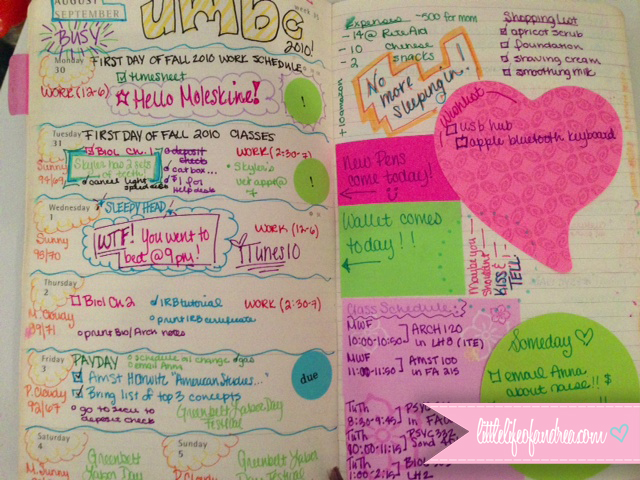 AUGUST
SEPTEMBER
BUSY
umbc
2010!
week 35
Monday
30
FIRST DAY OF FALL 2010 WORK SCHEDULE
timesheet
WORK (12-6)
Hello Moleskine!
!
Tuesday
31
FIRST DAY OF FALL 2010 CLASSES
Sunny
94/69
Biol Ch. 1
Skyler has 2 sets
of teeth!
cancel light
deposit
check
cat box...
$1 for
help desk
WORK (2:30-7)
Skyler's
vet app @
7
!
Wednesday
1
SLEEPY HEAD!
Sunny
98/70
WTF! You went to
bed @ 9pm!
WORK (12-6)
iTunes 10
Thursday
2
M. Cloudy
89/71
Biol Ch. 2
IRB tutorial
print IRB certificate
print Bio/Arch notes
WORK (2:30-7)
Friday
3
PAYDAY
schedule al change
gas
email Anna
P. Cloudy
92/67
Amst Horwitz "American Studies..."
Bring list of top 3 concepts
go to SECU to
deposit check
Greenbelt Labor Day
Festival
due
Saturday
4
M. Sunny
Greenbelt
Labor Day
Sunday
5
P. Cloudy
Greenbelt Labor
Day Festival
Expenses
~500 for mom
-14 @ Rite Aid
-10 chinese
-2 snacks
+10 amazon
No
more
sleeping in!
Shopping List
apricot scrub
foundation
shaving cream
smoothing milk
Wishlist
usb hub
apple bluetooth keyboard
New Pens
come today!
Wallet comes
today!!
Maybe you
shouldn't
KISS &
TELL
Class Schedule:
MWF
10:00-10:50
ARCH 120
in LH8 (ITE)
MWF
11:00-11:50
AMST 100
in FA 215
TuTh
8:30-9:45
TuTh
10:00-11:15
TuTh
1:00-2:15
LH2
Someday
email Anna
about raise!! $
littlelifeofandrea.com